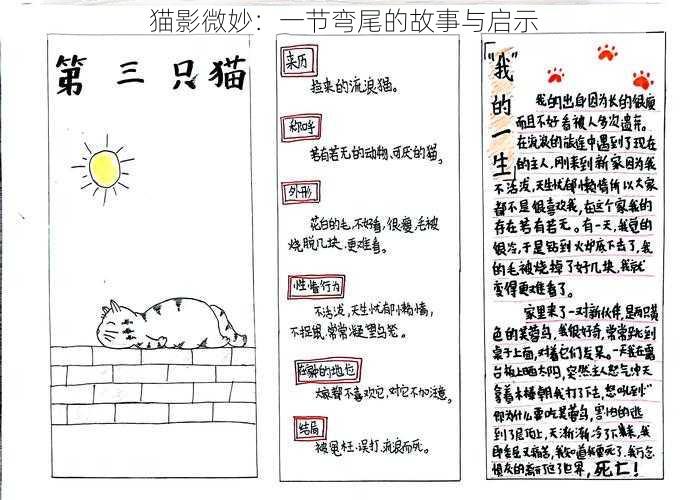 猫影微妙：一节弯尾的故事与启示
第三只猫
来历
捡来的流浪猫。
称呼
若有若无的动物、可厌的猫。
外形
花白的毛，不好看，很瘦，毛被
烧脱几块，更难看。
性情行为
不活泼，天生忧郁懒惰，
不捉鼠，常常凝望鸟笼。
在家的地位
大家都不喜欢它，对它不加注意。
结局
被冤枉、误打、流浪而死。
“我”的一生
我的出自因为长的很瘦
而且不好看被人多次遗弃。
在流浪的旅途中遇到了现在
的主人，刚来到新家因为我
不活泼，天生忧郁懒惰所以大家
都不是很喜欢我，在这个家我的
存在若有若无。有一天，我觉的
很冷，于是钻到火炉底下去了，我
的毛被烧掉了好几块，我就
变得更难看了。
家里来了一对新伙伴，是两只黄
色的芙蓉鸟，我很好奇，常常跑到
桌子上面，对着它们发呆。一天我在露
台板上晒太阳，突然主人怒气冲天
拿着木棒朝我打了下去，您吼到“
你为什么要吃芙蓉鸟，害怕的逃
到了屋顶上，天渐渐冷了下来，我
即委屈又痛苦，我知道我要死了，我
死亡！